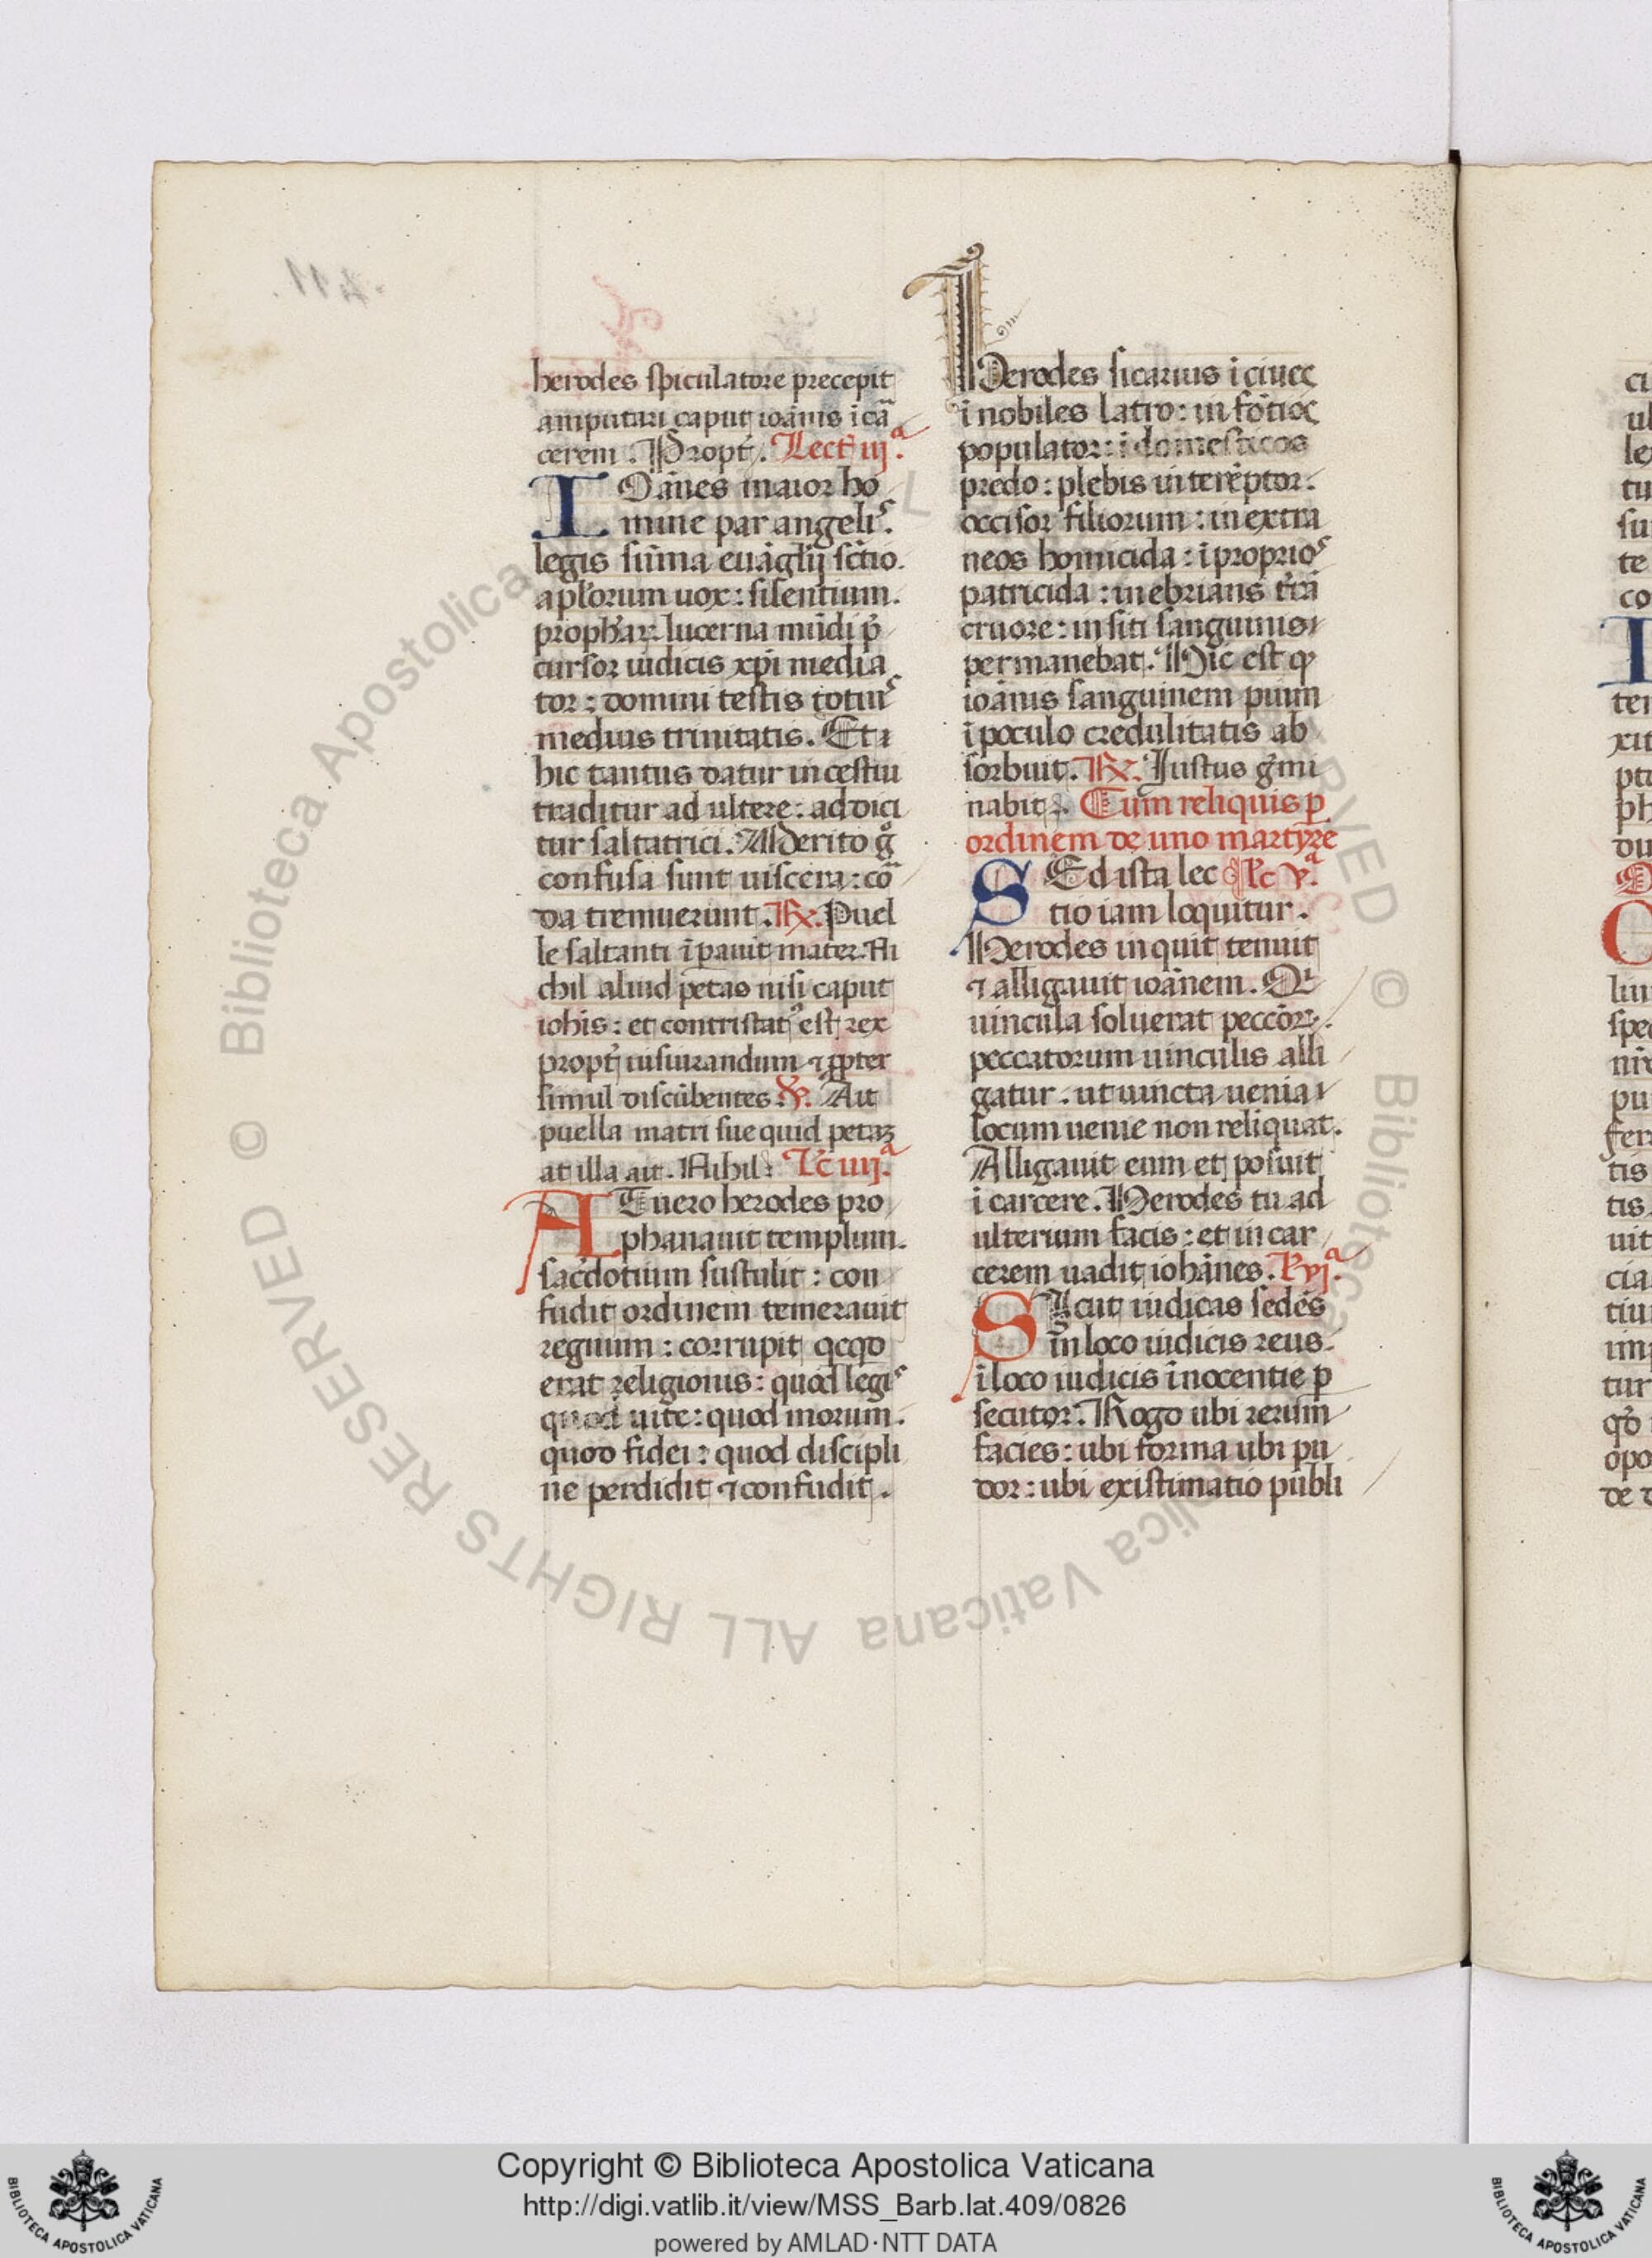 herodes spiculatore precepit
amputari caput ioānis i cā
cerem. Propt̄. Lect iij.ª
IOānes maior ho
mine par angelis.
legis sūma euāglij sctio.
apl̄orum uox: silentium.
prophar̄: lucerna mūdi p̄
cursor iudicis xp̄i media
tor: domini testis totius
medius trinitatis. Et
hic tantus datur incestui
traditur ad ultere: addici
tur saltatrici. Merito g̊
confusa sunt uiscera: cō
da tremuerunt. ℟. Puel
le saltanti īpauit mater. Ni
chil aliud petas nisi caput
iohis: et contristatꝰ est rex
propt̄ iusiurandum ⁊ ꝓpter
simul discūbentes ℣. Ait
puella matri sue quid petaꝫ
at illa ait. Nihil: Lc iiij.ª
ATuero herodes pro
phanauit templum.
sac̄dotium sustulit: con
fudit ordinem temerauit
regnum: corrupit qcqd
erat religionis: quod legis
quod uite: quod morum.
quod fidei: quod discipli
ne perdidit ⁊ confudit.
Herodes sicarius i ciues
i nobiles latro: in
populator: i domesticos
predo: plebis interēptor.
occisor filiorum: in extra
neos homicida: i proprios
patricida: inebrians t̄rā
cruore: in siti sanguinis
permanebat. Hic est q
ioānis sanguinem pium
i poculo credulitatis ab
sorbuit. ℟. Iustus ḡmi
nabit. Cum reliquis p̱
ordinem de uno martyre
SEd ista lec Lc v.ª
tio iam loquitur.
Herodes inquit tenuit
⁊ alligauit ioānem. Qi
uincula soluerat peccōꝝ.
peccatorum uinculis alli
gatur. ut uincta uenia
locum uenie non reliquat.
Alligauit eum et posuit
i carcere. Herodes tu ad
ulterium facis: et in car
cerem uadit iohānes. L vj.ª
SIcut iudicas sedēs
in loco iudicis reus.
i loco iudicis inocentie ꝑ
secutor. Rogo ubi rerum
facies: ubi forma ubi pu
dor: ubi existimatio publi
Copyright © Biblioteca Apostolica Vaticana
http://digi.vatlib.it/view/MSS_Barb.lat.409/0826
powered by AMLAD·NTT DATA
© Biblioteca Apostolica Vaticana ALL RIGHTS RESERVED
BIBLIOTECA APOSTOLICA VATICANA
BIBLIOTECA APOSTOLICA VATICANA